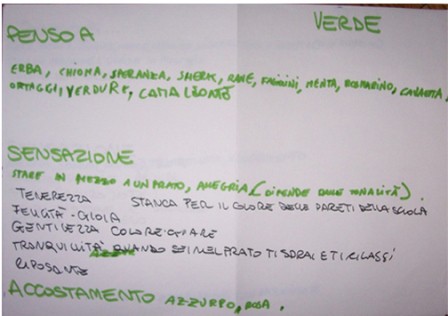 VERDE
PENSO A
ERBA, CHIOMA, SPERANZA, SHERK, RANE, FAGIOLINI, MENTA, ROSMARINO,
ORTAGGI, VERDURE, CAMALEONTE
SENSAZIONE
STARE IN MEZZO A UN PRATO, ALLEGRIA (DIPENDE DALLE TONALITÀ).
TENEREZZA STANCA PER IL COLORE DELLE PARETI DELLA SCUOLA
FELICITÀ - GIOIA
GENTILEZZA COLORE
TRANQUILLITÀ QUANDO SEI NEL PRATO TI SDRAI E TI RILASSI
RIPOSANTE
ACCOSTAMENTO AZZURRO, ROSA.